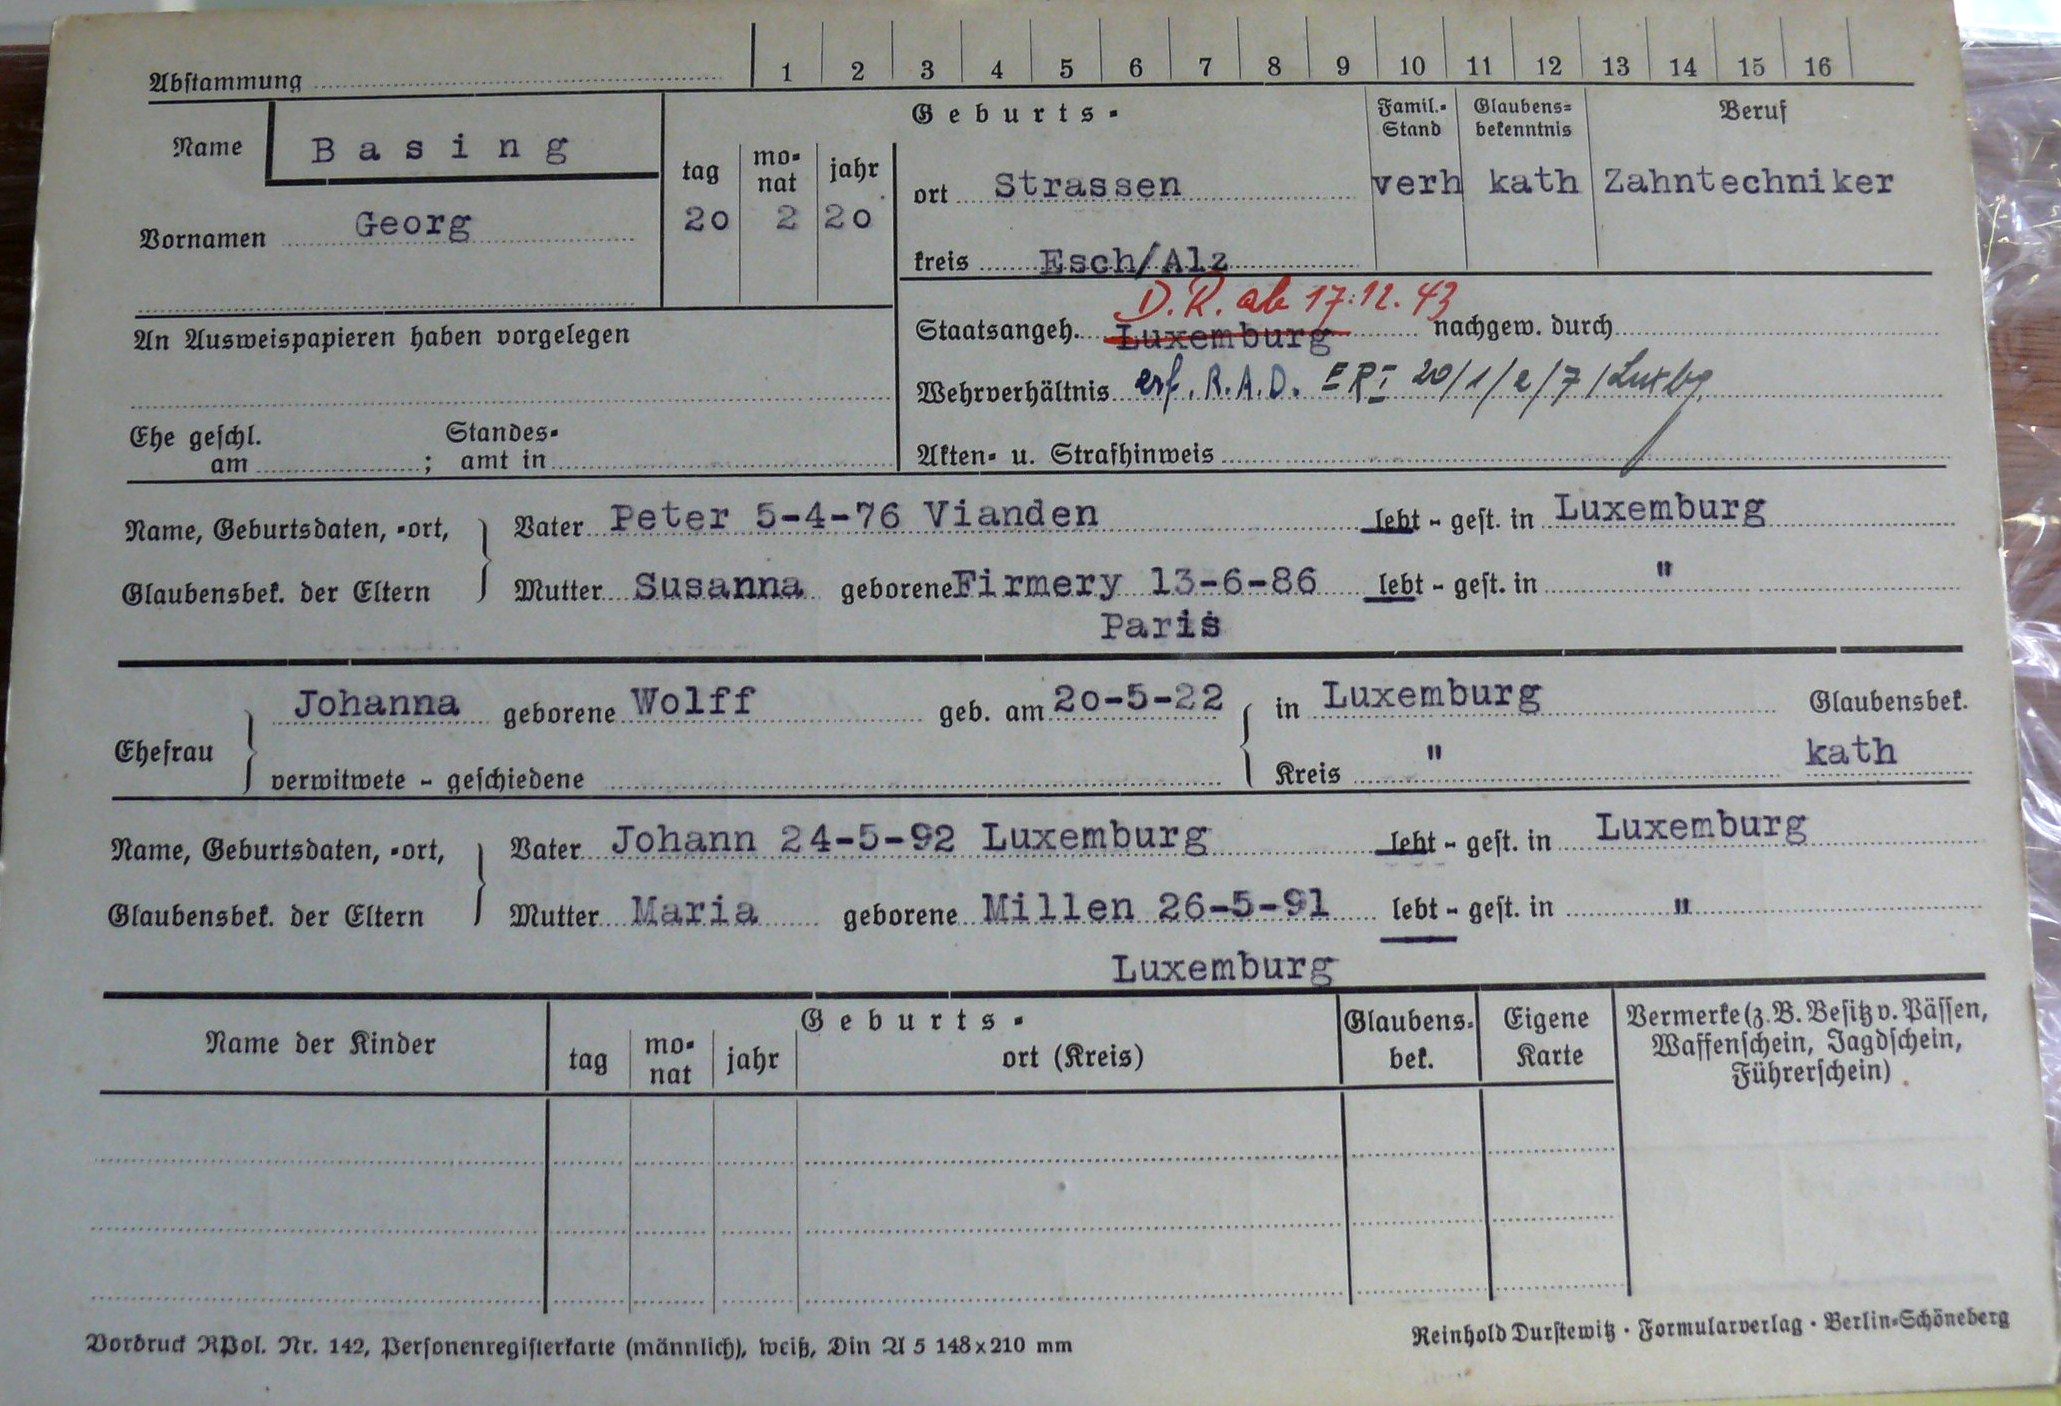 Abstammung 1 2 3 4 5 6 7 8 9 10 11 12 13 14 15 16
Name Basing
Vornamen Georg
Geburts-
tag monat jahr
20 2 20
ort Strassen
kreis Esch/Alz
Famil.-Stand
verh
Glaubensbekenntnis
kath
Beruf
Zahntechniker
An Ausweispapieren haben vorgelegen
D.R. ab 17.12.43
Staatsangeh. Luxemburg nachgew. durch
Wehrverhältnis erf. R.A.D. ER I 20/1/2/7/Luxbg.
Akten- u. Strafhinweis
Ehe geschl. am ; Standesamt in
Name, Geburtsdaten, -ort,
Glaubensbek. der Eltern
Vater Peter 5-4-76 Vianden lebt - gest. in Luxemburg
Mutter Susanna geborene Firmery 13-6-86 lebt - gest. in "
Paris
Ehefrau
Johanna geborene Wolff geb. am 20-5-22 in Luxemburg Glaubensbek.
verwitwete - geschiedene Kreis " kath
Name, Geburtsdaten, -ort,
Glaubensbek. der Eltern
Vater Johann 24-5-92 Luxemburg lebt - gest. in Luxemburg
Mutter Maria geborene Millen 26-5-91 lebt - gest. in "
Luxemburg
Name der Kinder
Geburts-
tag monat jahr ort (Kreis)
Glaubensbek.
Eigene Karte
Vermerke (z. B. Besitz v. Pässen,
Waffenschein, Jagdschein,
Führerschein)
Vordruck RPol. Nr. 142, Personenregisterkarte (männlich), weiß, Din A 5 148x210 mm
Reinhold Durstewitz · Formularverlag · Berlin-Schöneberg